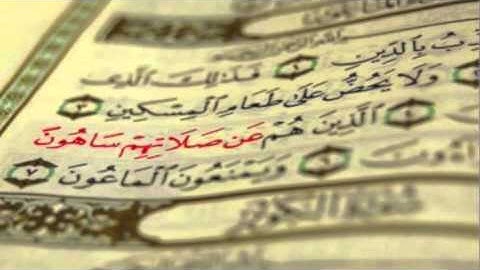 ذِّبُ بِالدِّينِ ١ فَذَٰلِكَ الَّذِى
وَلَا يَحُضُّ عَلَىٰ طَعَامِ الْمِسْكِينِ ٣
الَّذِينَ هُمْ عَن صَلَاتِهِمْ سَاهُونَ
رَاءُونَ ٦ وَيَمْنَعُونَ الْمَاعُونَ ٧
سُورَةُ الْكَوْثَرِ